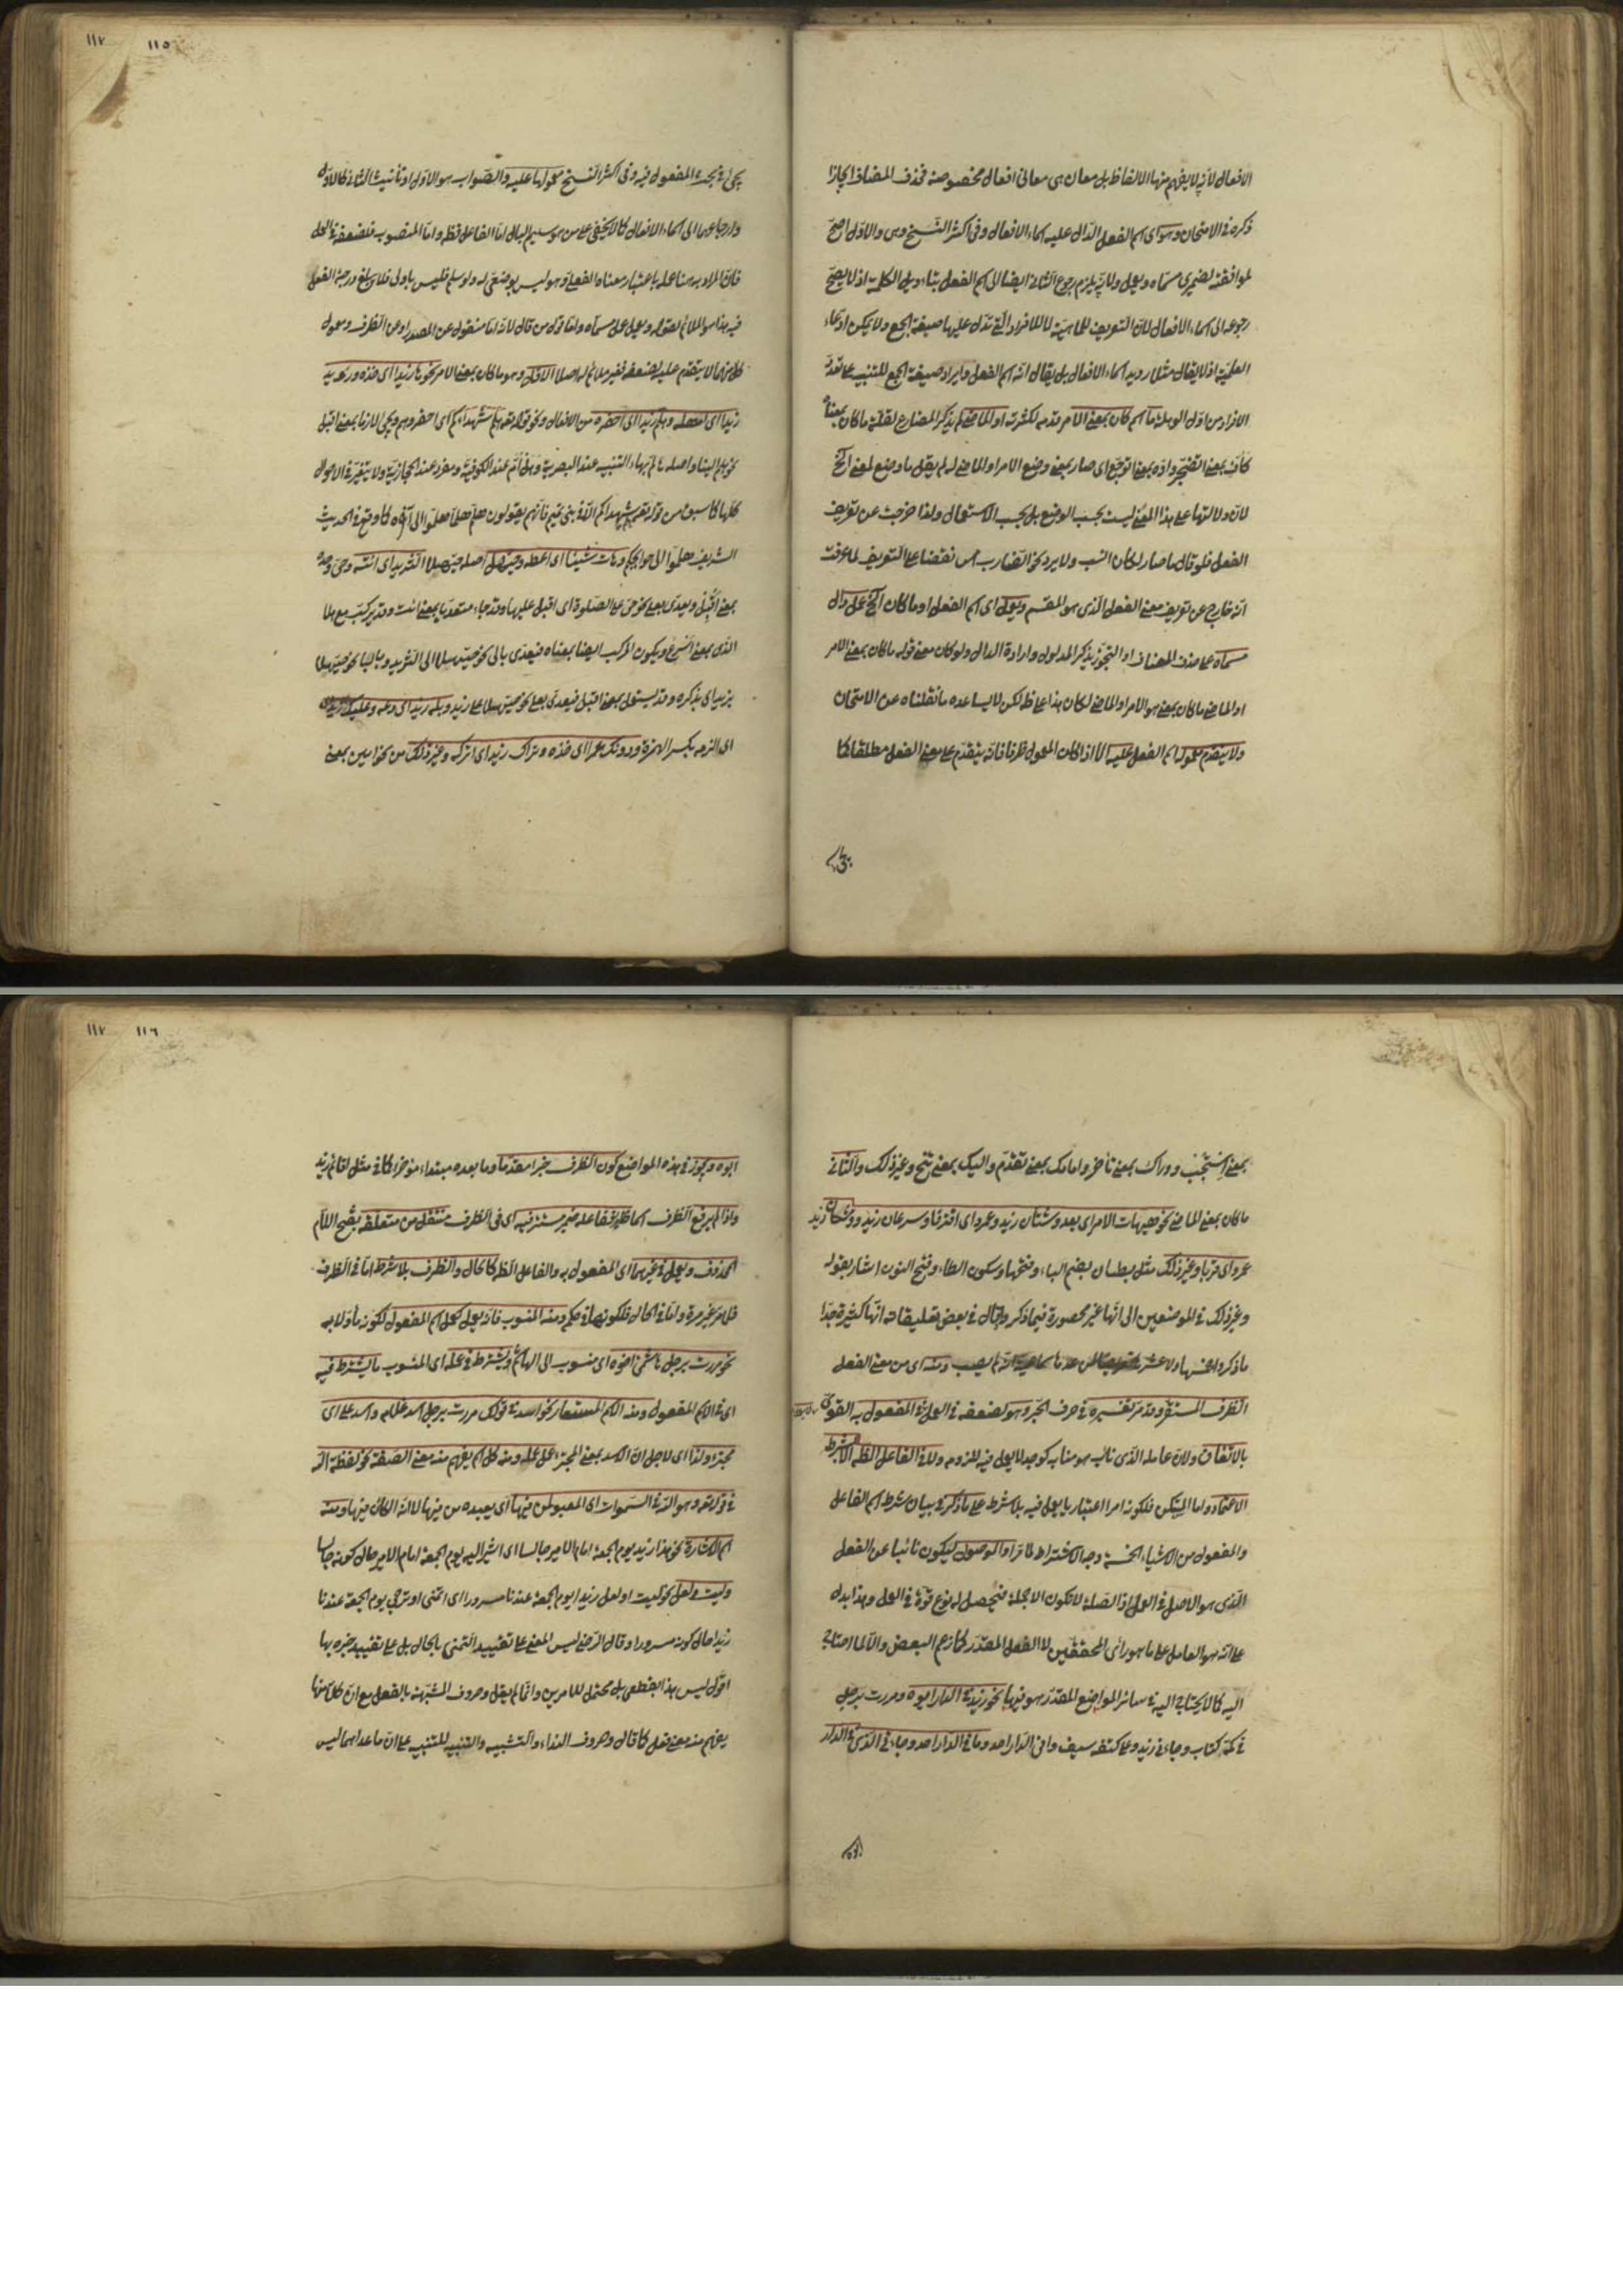 الافعال لانه لا يفهم منها الالفاظ بل معان هى معانى افعال مخصوصة فحذف المضاف ايجازا
ذكره فى الامتحان وهو اى اسم الفعل الدال عليه اسماء الافعال وفى اكثر النسخ وهى والاول اصح
لموافقته لضميرى مسماه ويعمل ولانه يلزم رجوع الثانى ايضا الى اسم الفعل بتاويل الكلمة اذ لا يصح
رجوعه الى اسماء الافعال لان التعريف للماهية لا للافراد التى تدل عليها صيغة الجمع ولا يمكن ادعاء
العلمية اذ لا يقال مثلا رويد اسماء الافعال بل يقال انه اسم الفعل وايراد صيغة الجمع للتنبيه على تعدد
الافراد من اول الوهلة ما اسم كان بمعنى الامر قدمه لكثرته او الماضى لم يذكر المضارع لقلة ما كان بمعناه
كاف بمعنى اتضجر واوه بمعنى اتوجع اى صار بمعنى وضع الامر او الماضى له لم يقل ما وضع لمعنى الخ
لان دلالتها على هذا المعنى ليست بحسب الوضع بل بحسب الاستعمال ولذا خرجت عن تعريف
الفعل فلو قال ما صار لكان انسب ولا يرد نحو الضارب امس نقضا على التعريف لما عرفت
انه خارج عن تعريف معنى الفعل الذى هو المقسم ويعمل اى اسم الفعل او ما كان الخ عمل دال
مسماه على حذف المضاف او التجوز بذكر المدلول وارادة الدال ولو كان معنى قوله ما كان بمعنى الامر
او الماضى ما كان بمعنى هو الامر او الماضى لكان هذا على ظاهره لكن لا يساعده ما نقلناه عن الامتحان
ولا يتقدم معمول اسم الفعل عليه الا اذا كان المعمول ظرفا فانه يتقدم على معنى الفعل مطلقا كما
يجئ فى بحث المفعول فيه وفى اكثر النسخ معمولها عليه والصواب هو الاول او تانيث الثانى كالاول
وارجاعهما الى اسماء الافعال كما لا يخفى على من هو سليم البال اما الفاعل فظاهر واما المنصوب فلضعفه فى العمل
فان المراد به هنا عمله باعتبار معناه الفعلى وهو ليس بوضعى له ولو سلم فليس باولى فلا يبلغ درجة الفعل
فيه هذا هو الملائم لقوله ويعمل عمل مسماه واما قول من قال لانه اما منقول عن المصدر او عن الظرف ومعمول
كل منهما لا يتقدم عليه لضعفه فغير ملائم له اصلا الاول وهو ما كان بمعنى الامر نحو ها زيدا اى خذه ورويد
زيدا اى امهله وهلم زيدا اى احضره من الافعال ونحو قوله تعالى هلم شهداءكم اى احضروهم ويجئ لازما بمعنى اقبل
نحو هلم الينا واصله ها لم بهاء التنبيه عند البصرية وهل ام عند الكوفية ومفرد عند الحجازية ولا يتغير فى الاحوال
كلها كما سبق من قوله تعالى هلم شهداءكم الا فى بنى تميم فانهم يقولون هلم هلما هلموا الى آخره كما وقع فى الحديث
الشريف هلموا الى حوايجكم وهات شيئا اى اعطه وحيهل اصله حيهلا الثريد اى ائته وحى وحده
بمعنى اقبل ويعدى بعلى نحو حى على الصلوة اى اقبل عليها وقد جاء متعديا بمعنى ائت وقد يركب مع هلا
الذى بمعنى اسرع ويكون المركب ايضا بمعناه فيعدى بالى نحو حيهلا الى الثريد وبالباء نحو حيهلا
بزيد اى بذكره وقد يستعمل بمعنى اقبل فيعدى بعلى نحو حيهلا على زيد وبله زيدا اى دعه وعليك زيدا
اى الزمه بكسر الهمزة ودونك عمرا اى خذه وتراك زيدا اى اتركه وغير ذلك من نحو امين بمعنى
١١٥ ١١٧
بمعنى استجب ووراك بمعنى تاخر وامامك بمعنى تقدم واليك بمعنى تنح وغير ذلك والثانى
ما كان بمعنى الماضى نحو هيهات الامر اى بعد وشتان زيد وعمرو اى افترقا وسرعان زيد ووشكان زيد
عمرو اى قربا وغير ذلك مثل بطان بضم الباء وفتحها وسكون الطاء وفتح النون اشار بقوله
وغير ذلك فى الموضعين الى انها غير محصورة فيما ذكر وقال فى بعض تعليقاته انها كثيرة جدا
ما ذكروا خمسها ولا عشر ومنه اى من معنى الفعل
الظرف المستقر وقد مر تفسيره فى حرف الجر وهو لضعفه فى العمل لا يعمل فى المفعول به القوى
بالاتفاق ولان عامله الذى ناب هو منابه كوجد لا يعمل فيه للزومه ولا فى الفاعل الظاهر الا بشرط
الاعتماد واما المستكن فلكونه امرا اعتباريا يعمل فيه بلا شرط على ما ذكر فى بيان شرط اسم الفاعل
والمفعول من الاشياء الخمسة وجه الاشتراط ما مر او الموصول ليكون نائبا عن الفعل
الذى هو الاصل فى العمل اذ الصلة لا تكون الا جملة فيحصل له نوع قوة فى العمل وهذا يدل
على انه هو العامل على ما هو رأى المحققين لا الفعل المقدر كما زعم البعض والا لما احتاج
اليه كما لا يحتاج اليه فى سائر المواضع المقدر هو فيها نحو زيد فى الدار ابوه ومررت برجل
فى كمه كتاب وجاءنى زيد وعلى كتفه سيف وافى الدار احد وما فى الدار احد وجاءنى الذى فى الدار
ابوه ويجوز فى هذه المواضع كون الظرف خبرا مقدما وما بعده مبتداء مؤخرا كما فى مثل اقائم زيد
واذا لم يرفع الظرف اسما ظاهرا ففاعله ضمير مستتر فيه اى فى الظرف منتقل من متعلقه بفتح اللام
المحذوف ويعمل فى غيرهما اى المفعول به والفاعل الظاهر كالحال والظرف بلا شرط اما فى الظرف
فلما مر غير مرة واما فى الحال فلكونها فى حكمه ومنه المنسوب فانه يعمل كعمل اسم المفعول لكونه مأولا به
نحو مررت برجل هاشمى اخوه اى منسوب الى الهاشم ويشترط فى عمله اى المنسوب ما يشترط فيه
اى فى اسم المفعول ومنه الاسم المستعار نحو اسد فى قولك مررت برجل اسد غلامه واسد على اى
مجترء ولذا اى لاجل ان الاسد بمعنى المجترء عمل عمله ومنه كل اسم يفهم منه معنى الصفة نحو لفظة الله
فى قوله تعالى وهو الله فى السموات اى المعبود من فيها اى يعبده من فيها لا انه الكائن فيها ومنه
اسم الاشارة نحو هذا زيد يوم الجمعة امام الامير جالسا اى اشير اليه يوم الجمعة امام الامير حال كونه جالسا
وليت ولعل نحو ليت او لعل زيدا يوم الجمعة عندنا مسرورا اى اتمنى او ترجى يوم الجمعة عندنا
زيدا حال كونه مسرورا وقال الرضى ليس المعنى على تقييد التمنى بالحال بل على تقييد خبره بها
اقول ليس هذا بقطعى بل محتمل للامرين وانما لم يقل وحروف المشبهة بالفعل مع ان كلا منها
يفهم منه معنى فعل كما قال وحروف النداء والتشبيه والتنبيه للتنبيه على ان ما عداهما ليس
١١٦ ١١٧